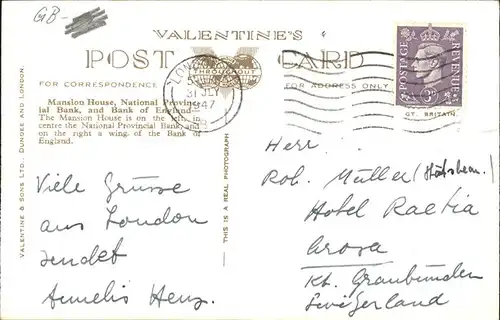 GB-
VALENTINE'S
POST CARD
FOR CORRESPONDENCE
THROUGHOUT
FOR ADDRESS ONLY
LONDON
31 JLY
1947
POSTAGE
REVENUE
3D
GT. BRITAIN.
Mansion House, National Provinc-
ial Bank, and Bank of England—
The Mansion House is on the left, in
centre the National Provincial Bank, and
on the right a wing of the Bank of
England.
VALENTINE & SONS LTD., DUNDEE AND LONDON.
THIS IS A REAL PHOTOGRAPH
Viele Grüsse
aus London
sendet
Annelis Henz.
Herr.
Rob. Müller
Hotel Raetia
Arosa
Kt. Graubünden
Switzerland